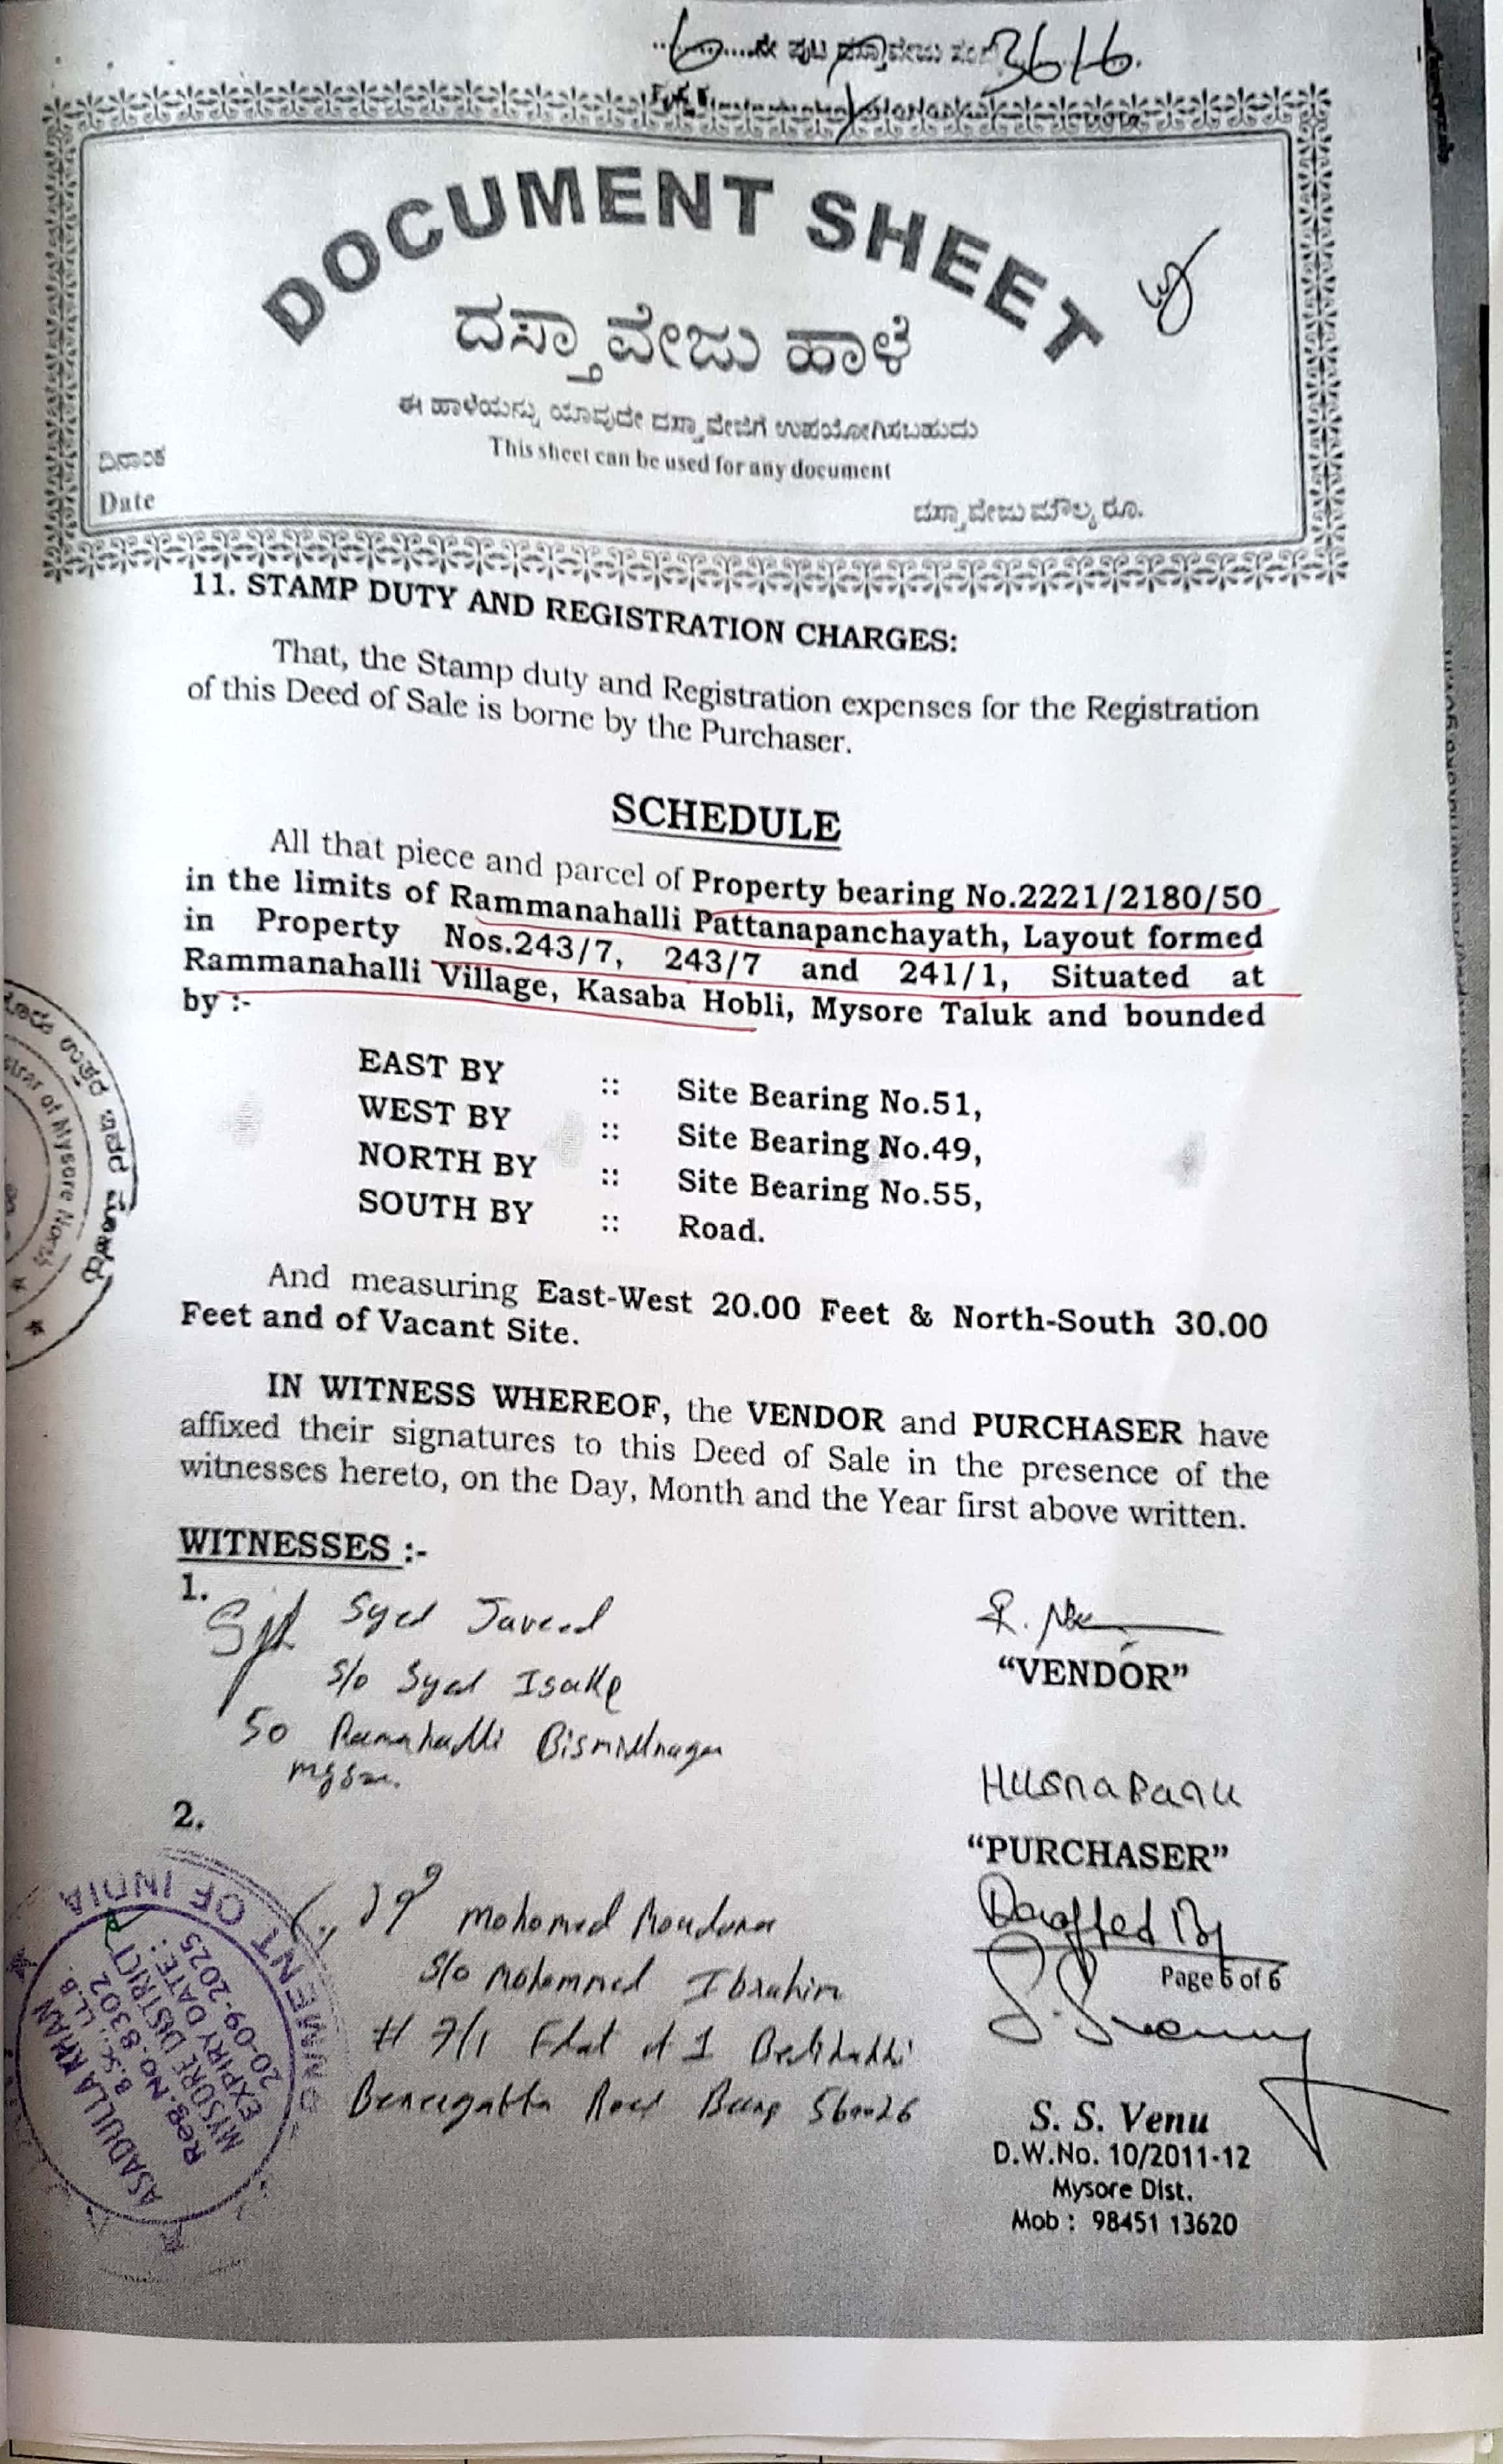 6 ನೇ ಪುಟ ದಸ್ತಾವೇಜು 3616
DOCUMENT SHEET
ದಸ್ತಾವೇಜು ಹಾಳೆ
ಈ ಹಾಳೆಯನ್ನು ಯಾವುದೇ ದಸ್ತಾವೇಜಿಗೆ ಉಪಯೋಗಿಸಬಹುದು
This sheet can be used for any document
ದಿನಾಂಕ
Date
ದಸ್ತಾವೇಜು ಮೌಲ್ಯ ರೂ.
11. STAMP DUTY AND REGISTRATION CHARGES:
That, the Stamp duty and Registration expenses for the Registration
of this Deed of Sale is borne by the Purchaser.
SCHEDULE
All that piece and parcel of Property bearing No.2221/2180/50
in the limits of Rammanahalli Pattanapanchayath, Layout formed
in Property Nos.243/7, 243/7 and 241/1, Situated at
Rammanahalli Village, Kasaba Hobli, Mysore Taluk and bounded
by :-
EAST BY :: Site Bearing No.51,
WEST BY :: Site Bearing No.49,
NORTH BY :: Site Bearing No.55,
SOUTH BY :: Road.
And measuring East-West 20.00 Feet & North-South 30.00
Feet and of Vacant Site.
IN WITNESS WHEREOF, the VENDOR and PURCHASER have
affixed their signatures to this Deed of Sale in the presence of the
witnesses hereto, on the Day, Month and the Year first above written.
WITNESSES :-
1.
Syed Javeed
S/o Syed Isake
50
"VENDOR"
Husna Banu
"PURCHASER"
2.
Mohamed
S/o Mohammed Ibrahim
# 7/1 Flat # 1
Road Bang 560026
Drafted By
Page 6 of 6
S. S. Venu
D.W.No. 10/2011-12
Mysore Dist.
Mob : 98451 13620
ASADULLA KHAN
B.Sc., LL.B.
Reg.No.8302
MYSORE DISTRICT
EXPIRY DATE :
20-09-2025
OF INDIA
of Mysore North